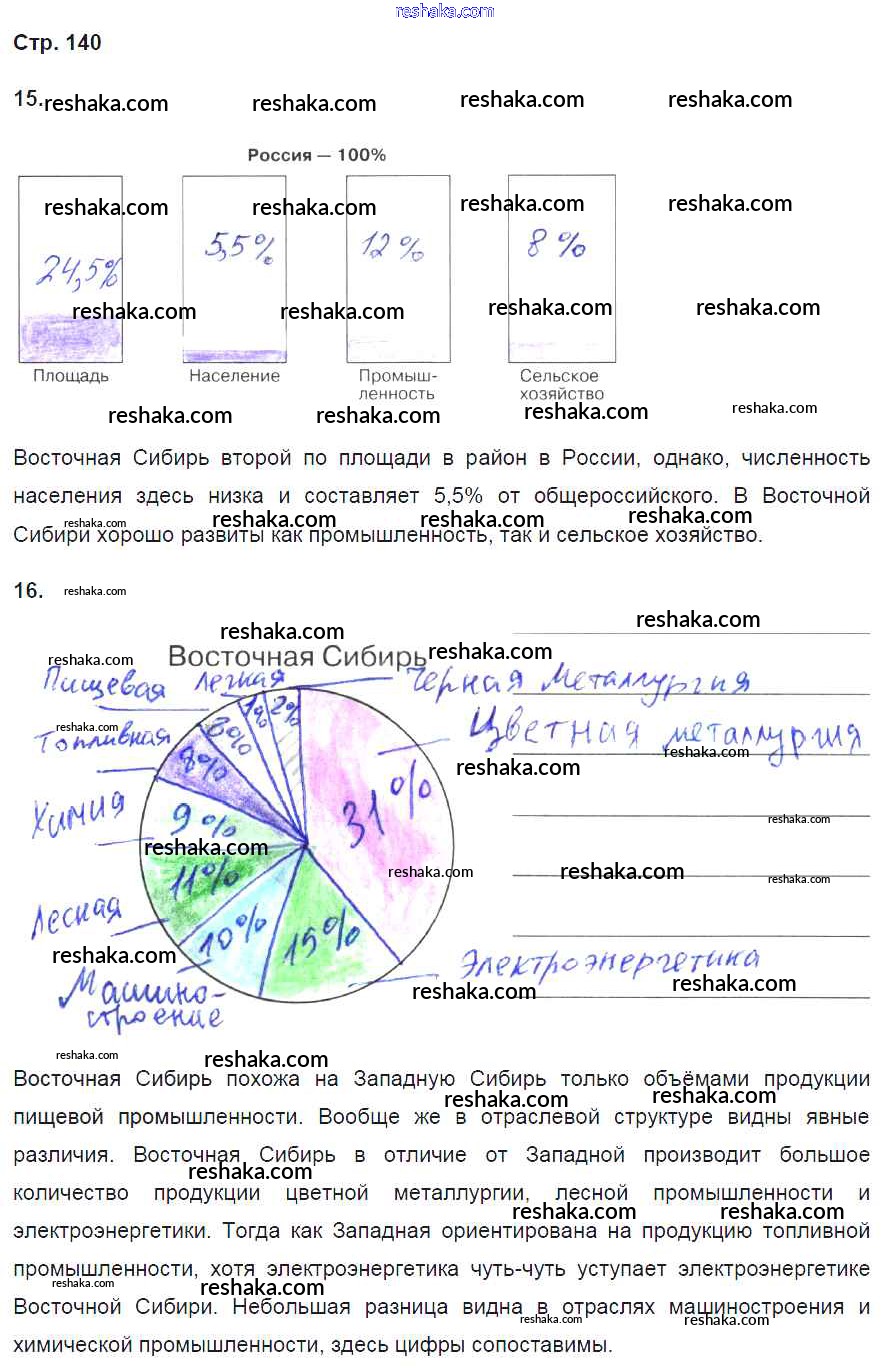 reshaka.com
Стр. 140
15. reshaka.com reshaka.com reshaka.com reshaka.com
Россия — 100%
reshaka.com reshaka.com reshaka.com reshaka.com
24,5% 5,5% 12% 8%
reshaka.com reshaka.com reshaka.com reshaka.com
Площадь Население Промыш-
ленность Сельское
хозяйство
reshaka.com reshaka.com reshaka.com reshaka.com
Восточная Сибирь второй по площади в район в России, однако, численность
населения здесь низка и составляет 5,5% от общероссийского. В Восточной
reshaka.com reshaka.com reshaka.com reshaka.com
Сибири хорошо развиты как промышленность, так и сельское хозяйство.
16. reshaka.com
reshaka.com reshaka.com
Восточная Сибирь
reshaka.com reshaka.com
Пищевая Легкая Черная металлургия
Топливная Цветная металлургия
reshaka.com reshaka.com reshaka.com
1% 2%
6%
8%
31%
Химия 9%
reshaka.com reshaka.com
11% reshaka.com reshaka.com reshaka.com
Лесная
10% 15%
reshaka.com Электроэнергетика
Машино-
строение
reshaka.com reshaka.com
reshaka.com reshaka.com
Восточная Сибирь похожа на Западную Сибирь только объёмами продукции
reshaka.com reshaka.com
пищевой промышленности. Вообще же в отраслевой структуре видны явные
различия. Восточная Сибирь в отличие от Западной производит большое
reshaka.com reshaka.com
количество продукции цветной металлургии, лесной промышленности и
reshaka.com reshaka.com
электроэнергетики. Тогда как Западная ориентирована на продукцию топливной
промышленности, хотя электроэнергетика чуть-чуть уступает электроэнергетике
reshaka.com reshaka.com
Восточной Сибири. Небольшая разница видна в отраслях машиностроения и
reshaka.com reshaka.com
химической промышленности, здесь цифры сопоставимы.